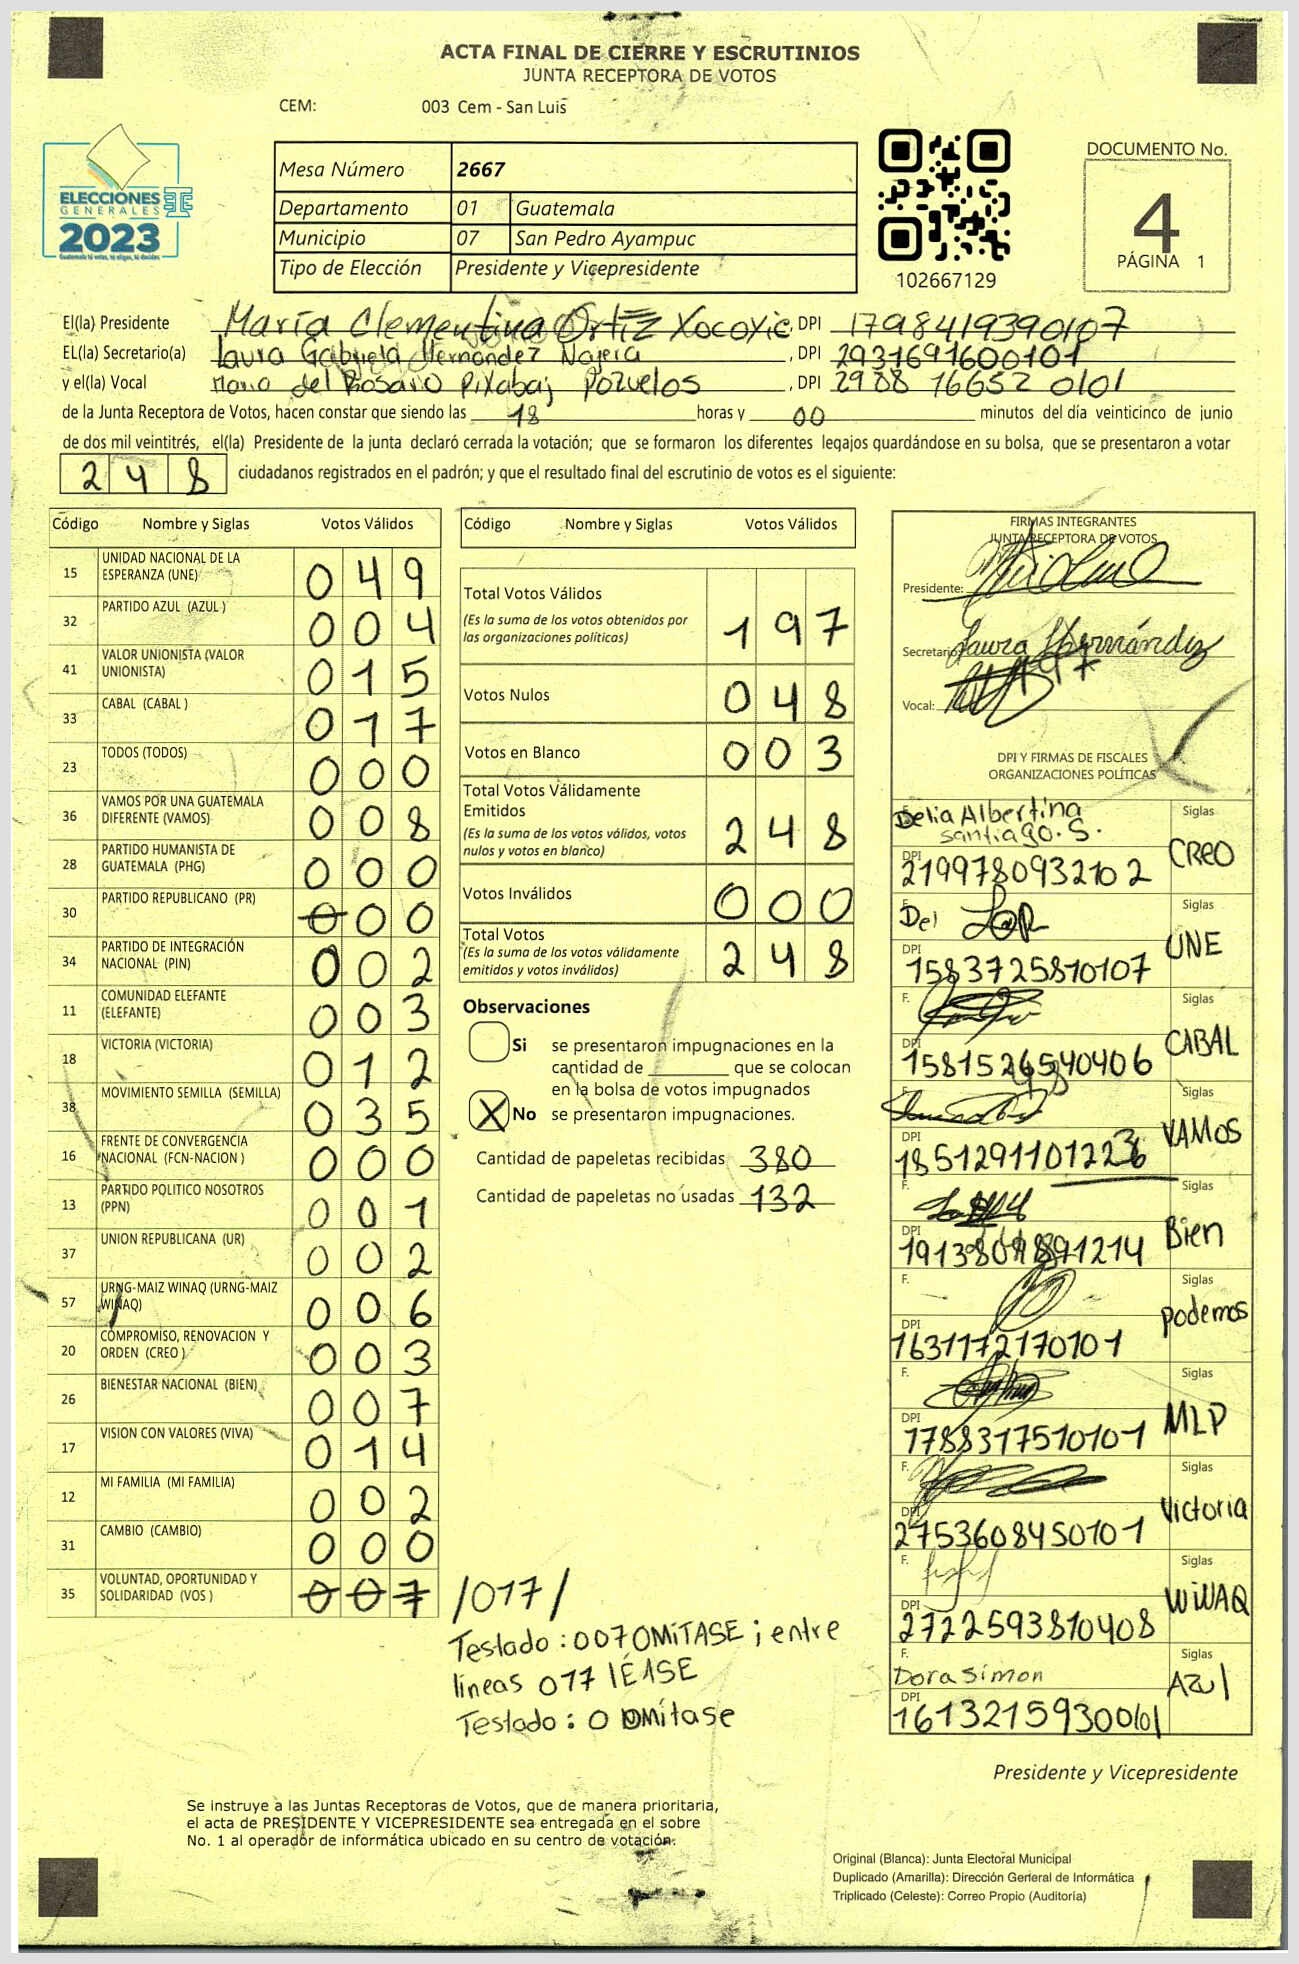 ACTA FINAL DE CIERRE Y ESCRUTINIOS
JUNTA RECEPTORA DE VOTOS
CEM: 003 Cem - San Luis
ELECCIONES
GENERALES
2023
Guatemala tú votas, tú eliges, tú decides
Mesa Número 2667
Departamento 01 Guatemala
Municipio 07 San Pedro Ayampuc
Tipo de Elección Presidente y Vicepresidente
102667129
DOCUMENTO No.
4
PÁGINA 1
El(la) Presidente María Clementina Ortiz Xocoyic, DPI 1798419390107
EL(la) Secretario(a) Laura Gabriela Hernández Najera, DPI 2931691600101
y el(la) Vocal María del Rosario Pixabaj Pozuelos, DPI 2988 16652 0101
de la Junta Receptora de Votos, hacen constar que siendo las 18 horas y 00 minutos del día veinticinco de junio
de dos mil veintitrés, el(la) Presidente de la junta declaró cerrada la votación; que se formaron los diferentes legajos guardándose en su bolsa, que se presentaron a votar
248 ciudadanos registrados en el padrón; y que el resultado final del escrutinio de votos es el siguiente:
Código Nombre y Siglas Votos Válidos
15 UNIDAD NACIONAL DE LA ESPERANZA (UNE) 049
32 PARTIDO AZUL (AZUL ) 004
41 VALOR UNIONISTA (VALOR UNIONISTA) 015
33 CABAL (CABAL ) 017
23 TODOS (TODOS) 000
36 VAMOS POR UNA GUATEMALA DIFERENTE (VAMOS) 008
28 PARTIDO HUMANISTA DE GUATEMALA (PHG) 000
30 PARTIDO REPUBLICANO (PR) 000
34 PARTIDO DE INTEGRACIÓN NACIONAL (PIN) 002
11 COMUNIDAD ELEFANTE (ELEFANTE) 003
18 VICTORIA (VICTORIA) 012
38 MOVIMIENTO SEMILLA (SEMILLA) 035
16 FRENTE DE CONVERGENCIA NACIONAL (FCN-NACION ) 000
13 PARTIDO POLITICO NOSOTROS (PPN) 001
37 UNION REPUBLICANA (UR) 002
57 URNG-MAIZ WINAQ (URNG-MAIZ WINAQ) 006
20 COMPROMISO, RENOVACION Y ORDEN (CREO ) 003
26 BIENESTAR NACIONAL (BIEN) 007
17 VISION CON VALORES (VIVA) 014
12 MI FAMILIA (MI FAMILIA) 002
31 CAMBIO (CAMBIO) 000
35 VOLUNTAD, OPORTUNIDAD Y SOLIDARIDAD (VOS ) 007 /017/
Código Nombre y Siglas Votos Válidos
Total Votos Válidos 197
(Es la suma de los votos obtenidos por
las organizaciones políticas)
Votos Nulos 048
Votos en Blanco 003
Total Votos Válidamente
Emitidos 248
(Es la suma de los votos válidos, votos
nulos y votos en blanco)
Votos Inválidos 000
Total Votos 248
(Es la suma de los votos válidamente
emitidos y votos inválidos)
Observaciones
Si se presentaron impugnaciones en la
cantidad de ________ que se colocan
en la bolsa de votos impugnados
X No se presentaron impugnaciones.
Cantidad de papeletas recibidas 380
Cantidad de papeletas no usadas 132
Testado: 007 OMITASE; entre
lineas 017 LÉASE
Testado: 0 OMitase
FIRMAS INTEGRANTES
JUNTA RECEPTORA DE VOTOS
Presidente:
Secretario: Laura Hernández
Vocal:
DPI Y FIRMAS DE FISCALES
ORGANIZACIONES POLÍTICAS
Delia Albertina
santiago. S.
Siglas CREO
DPI 2199780932102
F. Siglas UNE
DPI 1583725810107
F. Siglas CABAL
DPI 1581526540406
F. Siglas VAMOS
DPI
F. Siglas Bien
DPI
F. Siglas podemos
DPI 1631172170101
F. Siglas MLP
DPI 1788317510101
F. Siglas Victoria
DPI 2753608450101
F. Siglas WINAQ
DPI 2722593810408
F. Dora Simon Siglas Azul
DPI 16132159300101
Presidente y Vicepresidente
Se instruye a las Juntas Receptoras de Votos, que de manera prioritaria,
el acta de PRESIDENTE Y VICEPRESIDENTE sea entregada en el sobre
No. 1 al operador de informática ubicado en su centro de votación.
Original (Blanca): Junta Electoral Municipal
Duplicado (Amarilla): Dirección General de Informática
Triplicado (Celeste): Correo Propio (Auditoría)